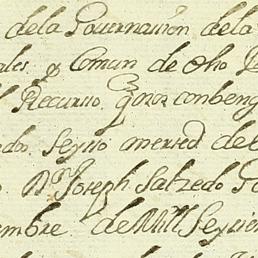 de la Governacion de la
ales, y Comun de dho
Recurso, q. por conbeng
dos Seys mersed de
Dn. Joseph Salzedo
embre de Mill Seysien